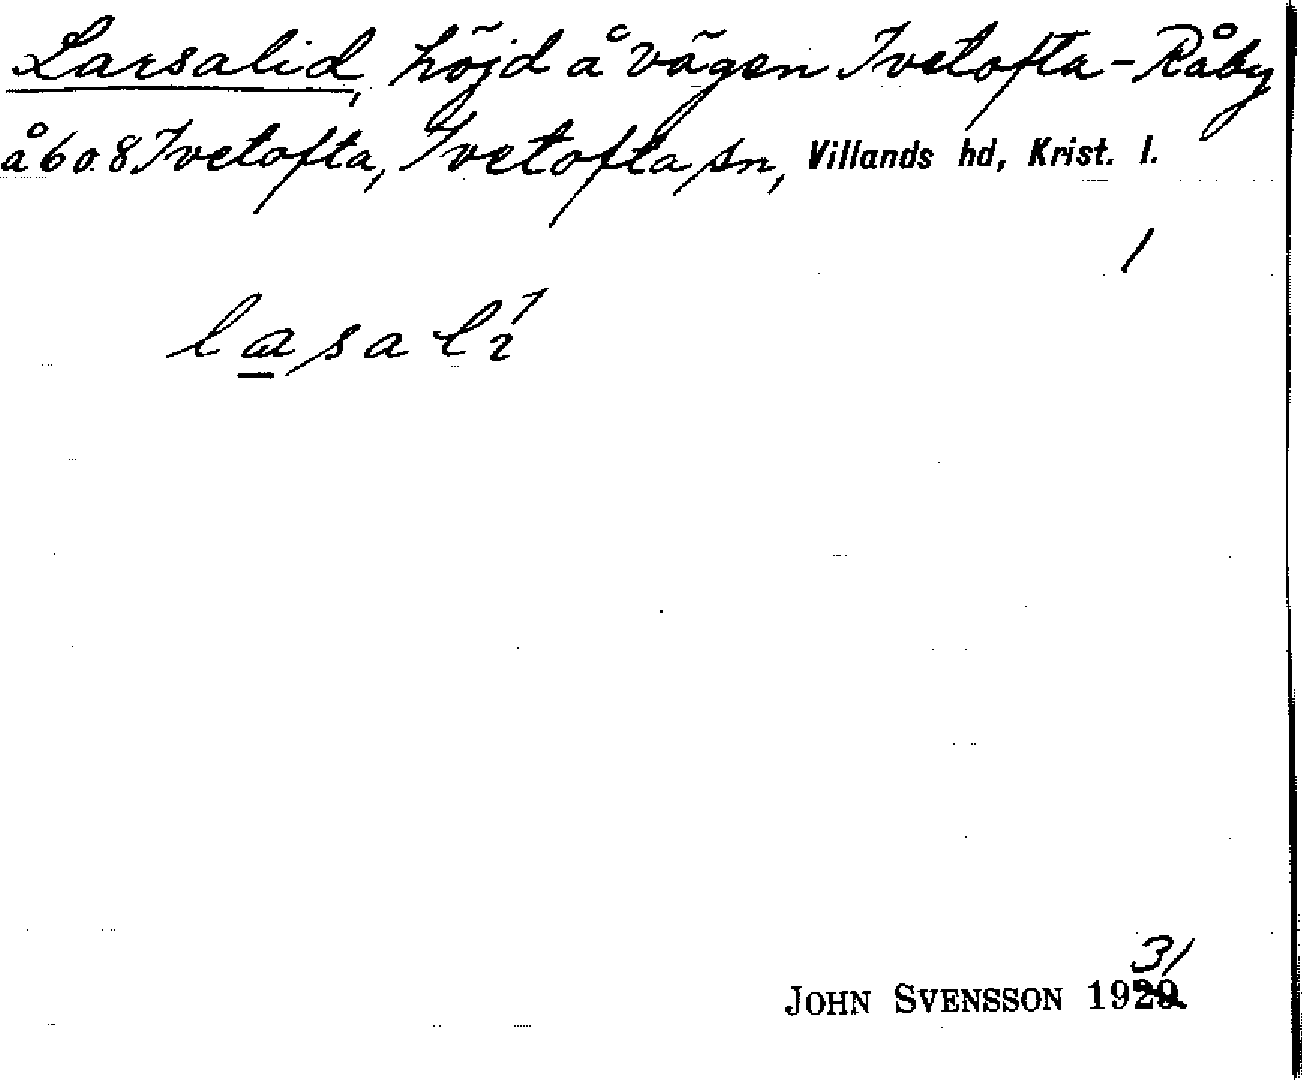 Larsalid, höjd å vägen Ivetofta - Råby
å 6 o. 8 Ivetofta, Ivetofta sn, Villands hd, Krist. l.
1
lasalí
31
JOHN SVENSSON 1929.